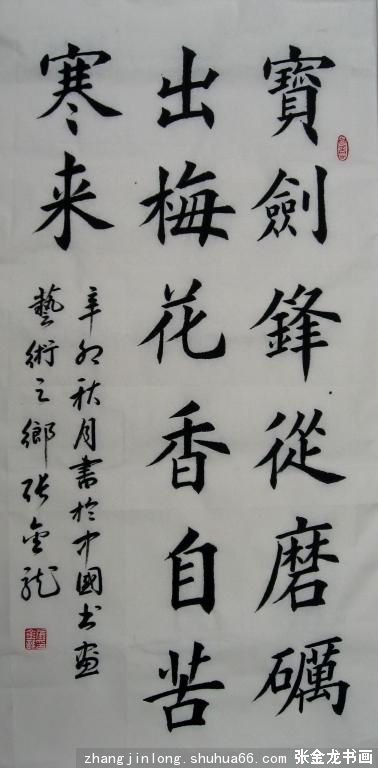 寶劍鋒從磨礪
出梅花香自苦
寒来
辛卯秋月書於中國书画
藝術之鄉张金龙
zhangjinlong.shuhua66.com 张金龙书画